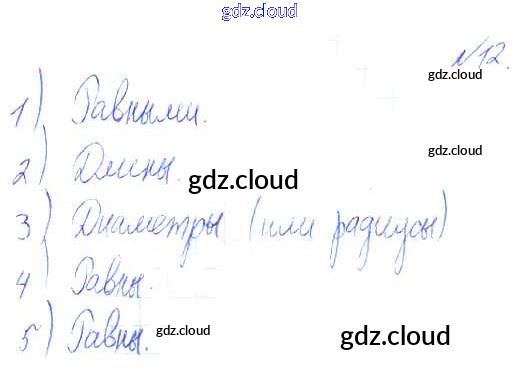 gdz.cloud
№12.
gdz.cloud
1) Равными.
gdz.cloud
2) Длины.
gdz.cloud
gdz.cloud
3) Диаметры (или радиусы)
4) Равны.
5) Равны.
gdz.cloud
gdz.cloud